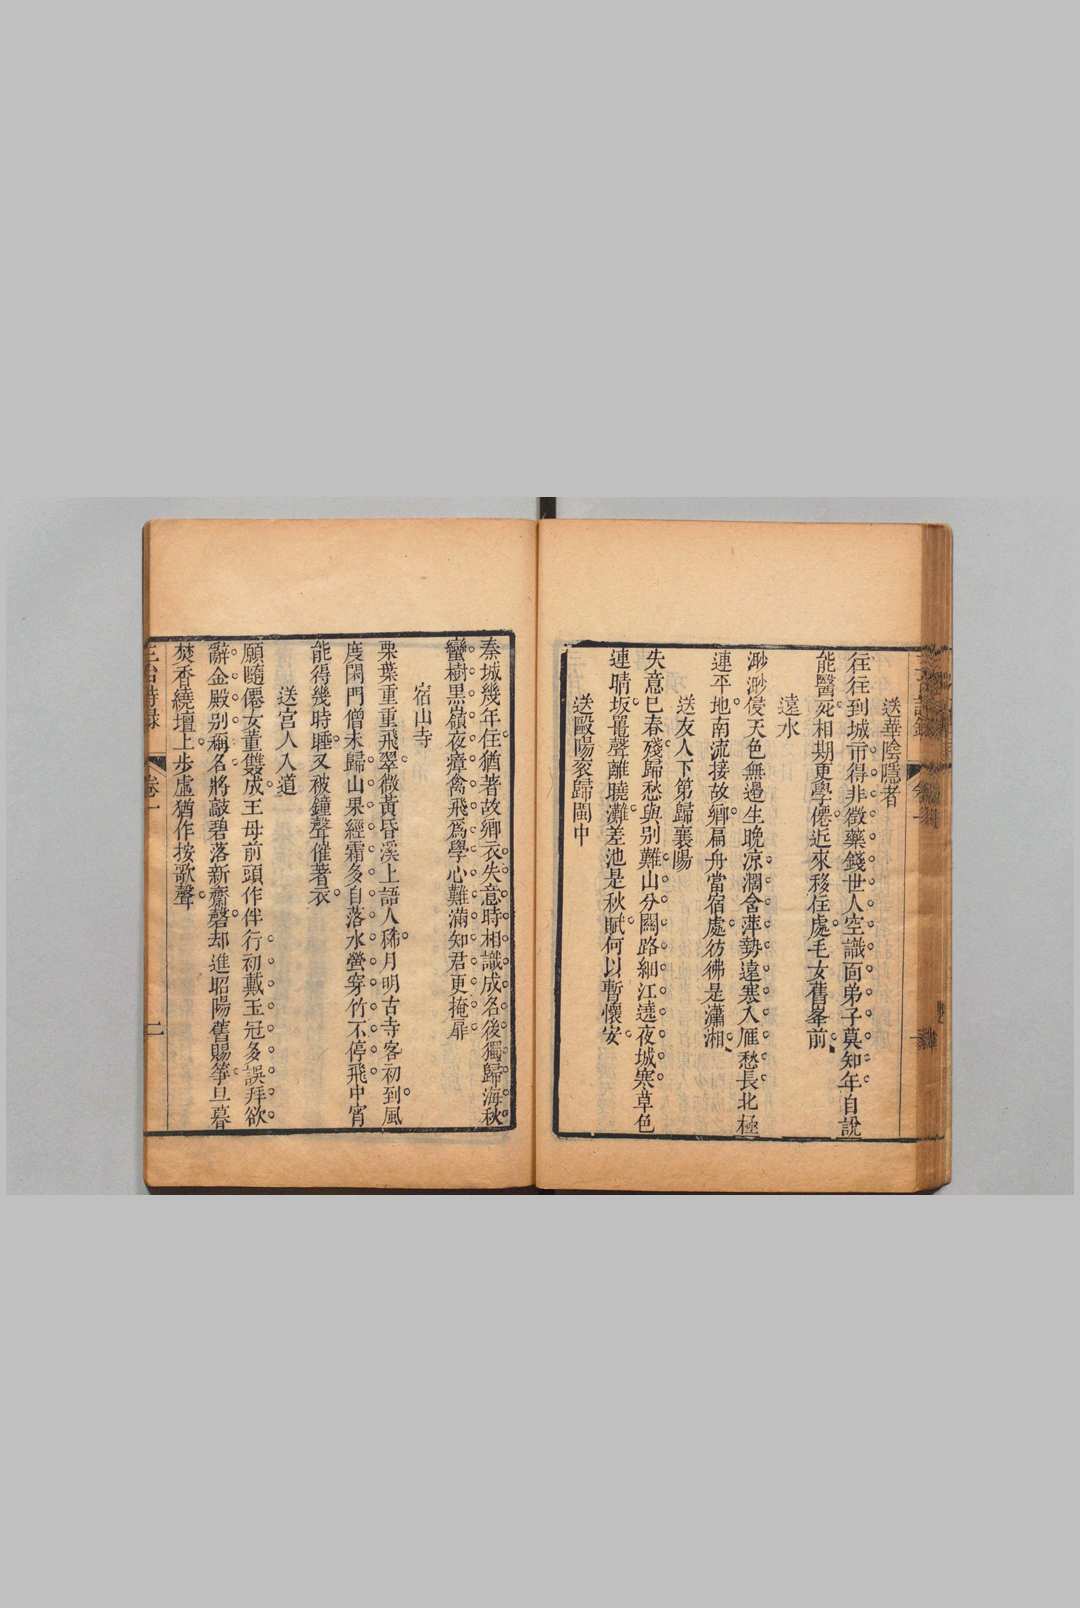 送華陰隱者
往往到城市得非徵藥錢世人空識面弟子莫知年自說
能醫死相期更學僊近來移住處毛女舊峯前
遠水
渺渺侵天色無邊生晚涼濶含萍勢遠寒入雁愁長北極
連平地南流接故鄉扁舟當宿處彷彿是瀟湘
送友人下第歸襄陽
失意已春殘歸愁與别難山分闗路細江遶夜城寒草色
連晴坂鼉聲離曉灘差池是秋賦何以暫懷安
送毆陽衮歸閩中
秦城幾年住猶著故鄉衣失意時相識成名後獨歸海秋
蠻樹黒嶺夜瘴禽飛爲學心難滿知君更掩扉
宿山寺
栗葉重重飛翠微黃昏溪上語人稀月明古寺客初到風
度閑門僧未歸山果經霜多自落水螢穿竹不停飛中宵
能得幾時睡又被鐘聲催著衣
送宮人入道
願隨僊女董雙成王母前頭作伴行初戴玉冠多誤拜欲
辭金殿别稱名將敲碧落新齋磬却進昭陽舊賜箏旦暮
焚香繞壇上步虛猶作按歌聲
三台詩錄
卷一
二